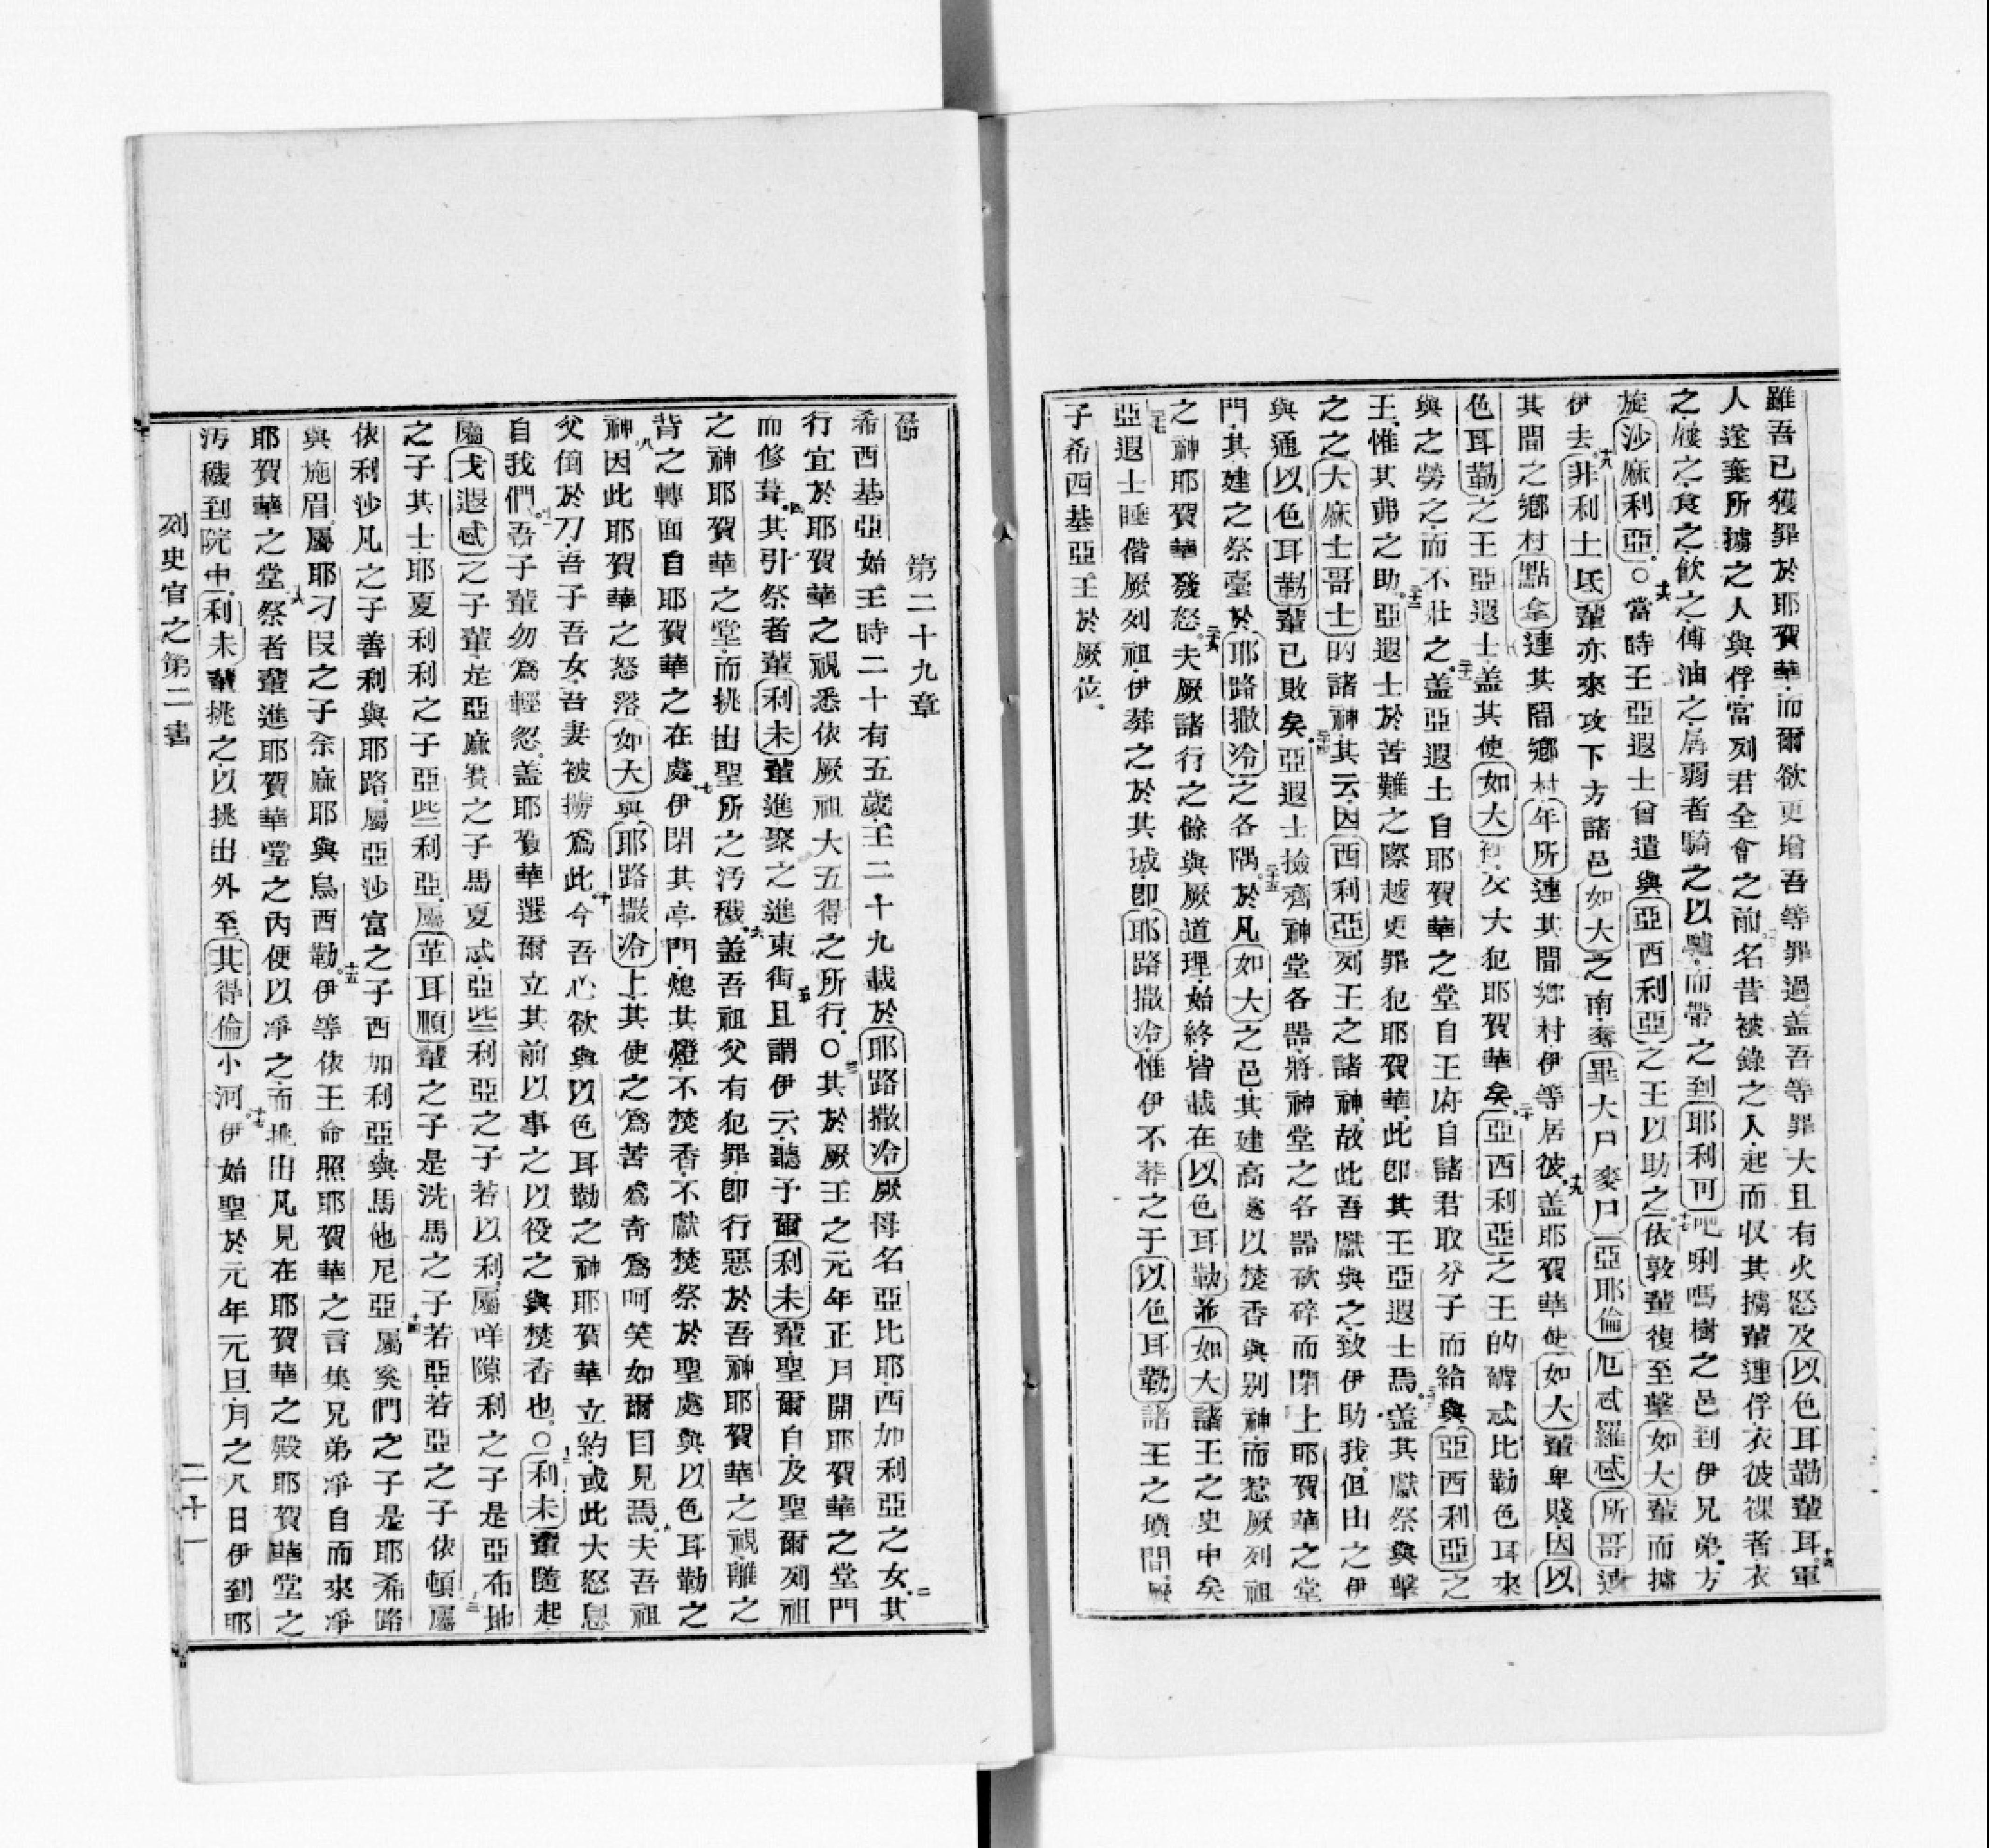 雖吾已獲罪於耶賀華而爾欲更增吾等罪過蓋吾等罪大且有火怒及以色耳勒輩耳十四軍
人遂棄所擄之人與俘當列君全會之前名昔被錄之人起而收其擄輩連俘衣彼裸者衣
之屨之食之飲之傅油之孱弱者騎之以驢而帶之到耶利可吧唎嗎樹之邑到伊兄弟方
旋沙麻利亞○十六當時王亞遐士曾遣與亞西利亞之王以助之十七依敦輩復至擊如大輩而擄
伊去十八非利士氐輩亦來攻下方諸邑如大之南奪畢大尸麥尸亞耶倫厄忒羅忒所哥連
其間之鄉村點拿連其間鄉村年所連其間鄉村伊等居彼十九蓋耶賀華使如大輩卑賤因以
色耳勒之王亞遐士蓋其使如大又大犯耶賀華矣二十亞西利亞之王的忒比勒色耳來
與之勞之而不壯之二十一蓋亞遐士自耶賀華之堂自王府自諸君取分子而給與亞西利亞之
王惟其弗之助二十二亞遐士於苦難之際越更罪犯耶賀華此卽其王亞遐士焉二十三蓋其獻祭與擊
之之大麻士哥士的諸神其云因西利亞列王之諸神故此吾獻與之致伊助我但由之伊
與通以色耳勒輩已敗矣二十四亞遐士撿齊神堂各器將神堂之各器砍碎而閉上耶賀華之堂
門其建之祭臺於耶路撒冷之各隅二十五於凡如大之邑其建高處以焚香與别神而惹厥列祖
之神耶賀華發怒二十六夫厥諸行之餘與厥道理始終皆載在以色耳勒並如大諸王之史中矣
二十七亞遐士睡偕厥列祖伊葬之於其城卽耶路撒冷惟伊不葬之于以色耳勒諸王之墳間厥
子希西基亞王於厥位
第二十九章
希西基亞始王時二十有五歲王二十九載於耶路撒冷厥母名亞比耶西加利亞之女二其
行宜於耶賀華之視悉依厥祖大五得之所行○三其於厥王之元年正月開耶賀華之堂門
而修葺四其引祭者輩利未輩進聚之進東街五且謂伊云聽予爾利未輩聖爾自及聖爾列祖
之神耶賀華之堂而挑出聖所之汚穢六蓋吾祖父有犯罪卽行惡於吾神耶賀華之視離之
背之轉面自耶賀華之在處七伊閉其亭門熄其燈不焚香不獻焚祭於聖處與以色耳勒之
神八因此耶賀華之怒落如大與耶路撒冷上其使之爲苦爲奇爲呵笑如爾目見焉九夫吾祖
父倒於刀吾子吾女吾妻被擄爲此十今吾心欲與以色耳勒之神耶賀華立約或此大怒息
自我們十一吾子輩勿爲輕忽蓋耶賀華選爾立其前以事之以役之與焚香也○十二利未輩隨起
屬戈遐忒之子輩是亞麻賽之子馬夏忒亞些利亞之子若以利屬咩隙利之子是亞布地
之子其士耶夏利利之子亞些利亞屬革耳順輩之子是洗馬之子若亞若亞之子依頓十三屬
依利沙凡之子善利與耶路屬亞沙富之子西加利亞與馬他尼亞十四屬奚們之子是耶希路
與施眉屬耶刁叚之子余麻耶與烏西勒十五伊等依王命照耶賀華之言集兄弟淨自而來淨
耶賀華之堂十六祭者輩進耶賀華堂之內便以淨之而挑出凡見在耶賀華之殿耶賀華堂之
汚穢到院中利未輩挑之以挑出外至其得倫小河十七伊始聖於元年元旦月之八日伊到耶
列史官之第二書
二十一